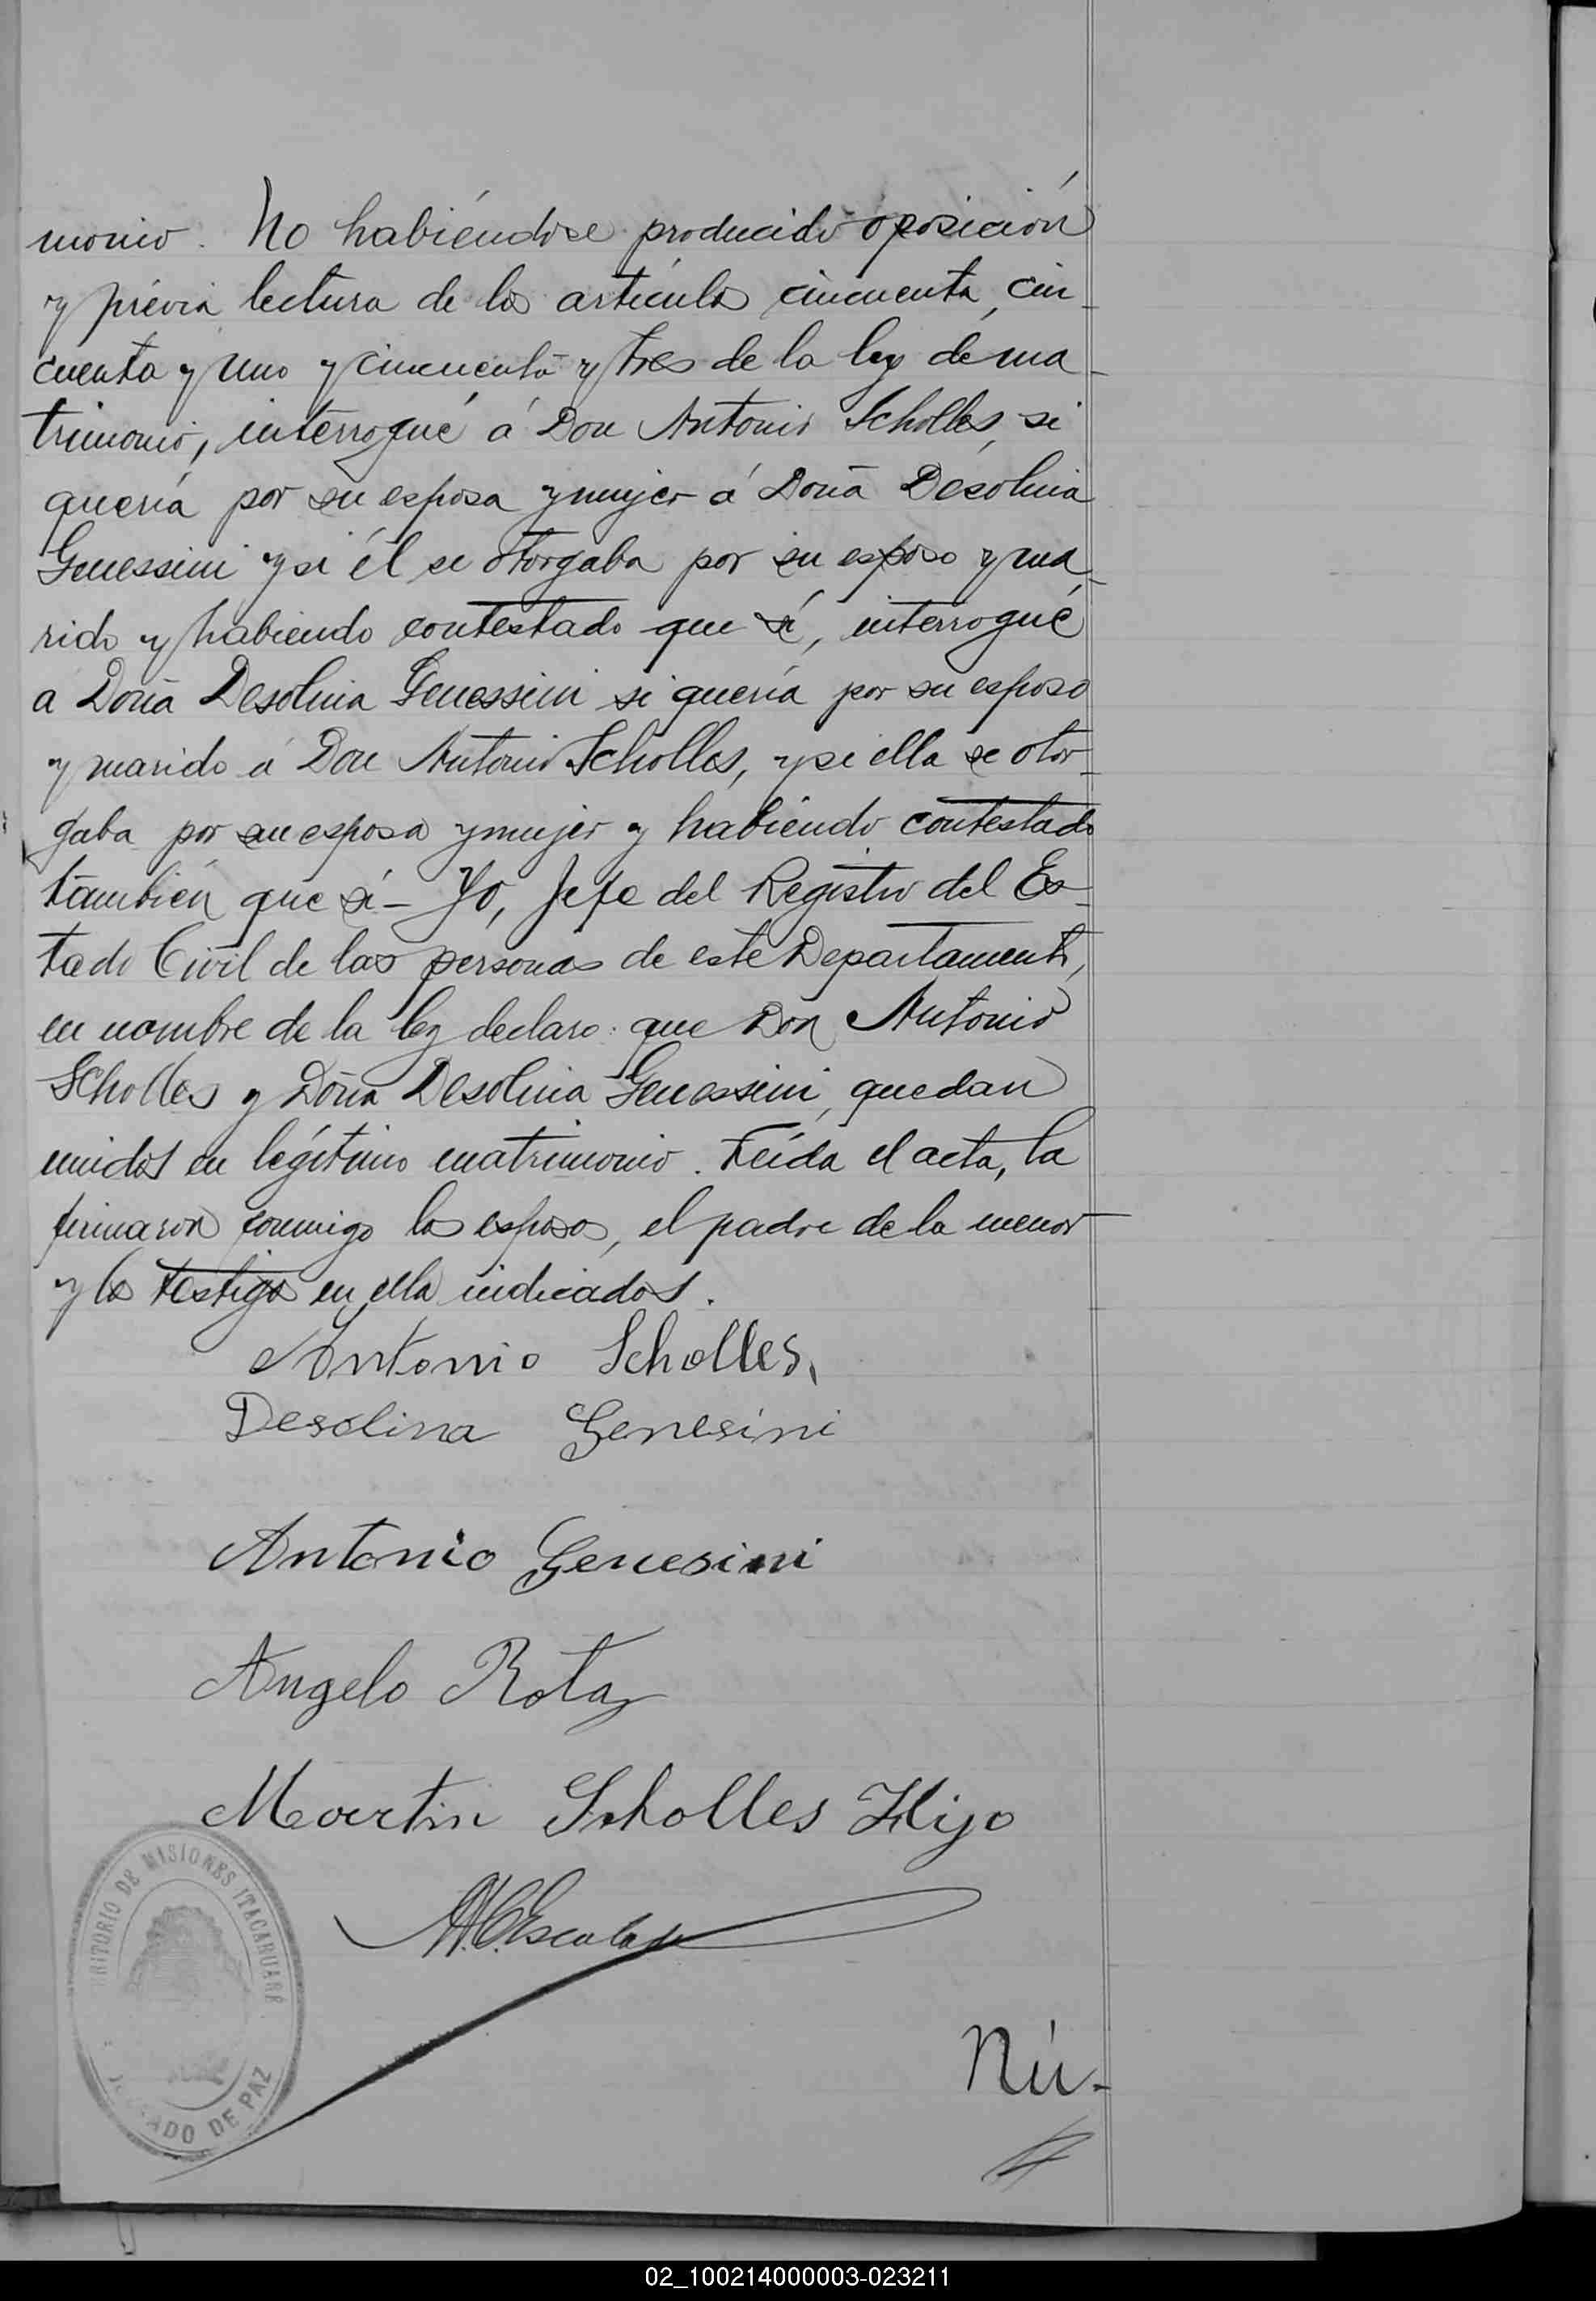 monio. No habiéndose producido oposición
y prévia lectura de los artículos cincuenta, cin-
cuenta y uno y cincuenta y tres de la ley de ma-
trimonio, interrogué á Don Antonio Scholles, si
quería por su esposa y mujer á Doña Désolina
Genessini y si él se otorgaba por su esposo y ma-
rido y habiendo contestado que sí, interrogué
a Doña Desolina Genessini si quería por su esposo
y marido á Don Antonio Scholles, y si ella se otor-
gaba por su esposa y mujer y habiendo contestado
también que sí - Yo, Jefe del Registro del Es-
tado Civil de las personas de este Departamento,
en nombre de la ley declaro: que Don Antonio
Scholles y Doña Desolina Genessini, quedan
unidos en legítimo matrimonio. Leída el acta, la
firmaron conmigo los esposos, el padre de la menor
y los testigos en ella indicados.
Antonio Scholles.
Desolina Genesini
Antonio Genesini
Angelo Rota
Martin Scholles Hijo
RITORIO DE MISIONES ITACARUARÉ
ADO DE PAZ
Nú-
02_100214000003-023211